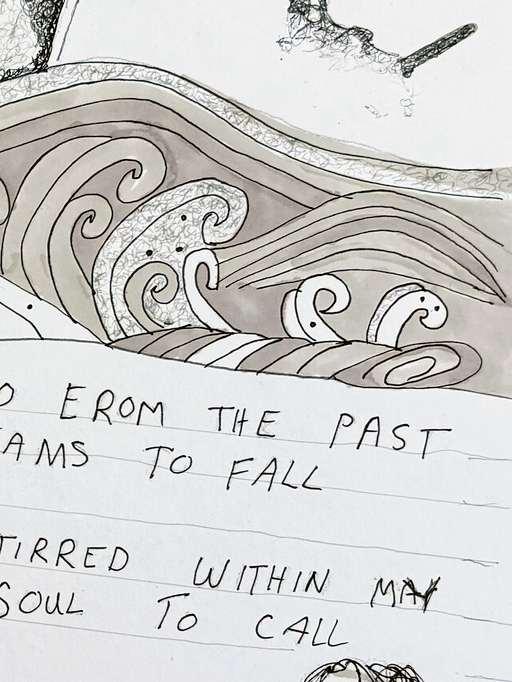 O EROM THE PAST
AMS TO FALL
TIRRED WITHIN MAY
SOUL TO CALL